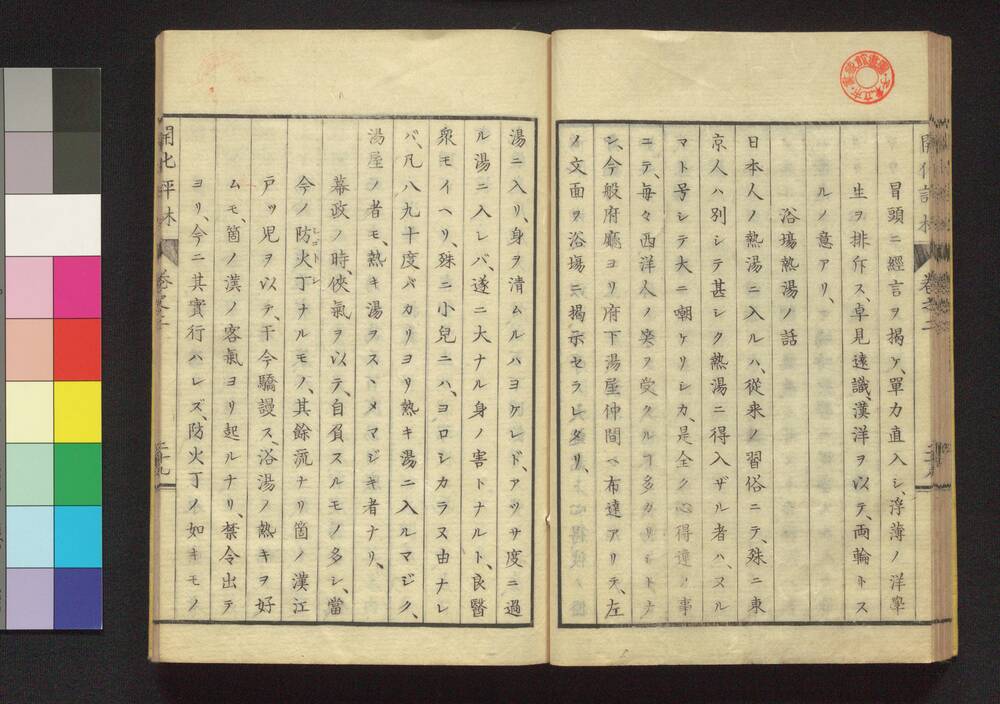 冒頭ニ經言ヲ揭ケ、單刀直入シ、浮薄ノ洋學
生ヲ排斥ス、卓見遠識、漢洋ヲ以テ、両輪トス
ルノ意アリ、
浴場熱湯ノ話
日本人ノ熱湯ニ入ルハ、従来ノ習俗ニテ、殊ニ東
京人ハ別シテ甚シク熱湯ニ得入ザル者ハ、ヌル
マト号シテ大ニ嘲ケリシカ、是全ク心得違ノ事
ニテ、毎々西洋人ノ笑ヲ受クルヿ多カリシトナ
シ、今般府廳ヨリ府下湯屋仲間ヘ布達アリテ、左
ノ文面ヲ浴場ニ揭示セラレタリ、
湯ニ入リ、身ヲ清ムルハヨケレド、アツサ度ニ過
ル湯ニ入レバ、遂ニ大ナル身ノ害トナルト、良醫
衆モイヘリ、殊ニ小兒ニハ、ヨロシカラヌ由ナレ
バ、凡八九十度バカリヨリ熱キ湯ニ入ルマジク、
湯屋ノ者モ、熱キ湯ヲスヽメマジキ者ナリ、
幕政ノ時、俠氣ヲ以テ、自負スルモノ多シ、當
今ノ防火丁ナルモノ、其餘流ナリ箇ノ漢江
戸ッ児ヲ以テ、于今驕謾ス、浴湯ノ熱キヲ好
ムモ、箇ノ漢ノ客氣ヨリ起ルナリ、禁令出テ
ヨリ、今ニ其實行ハレズ、防火丁ノ如キモノ
開化評林
卷之二